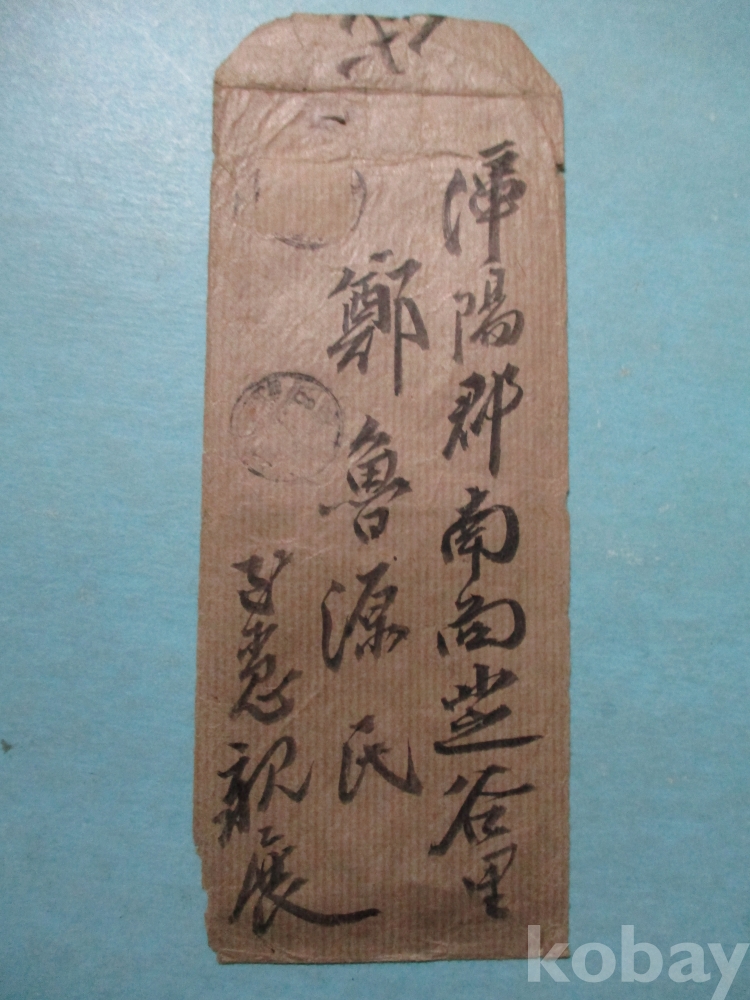 潭陽郡南面芝谷里
鄭魯源氏
親展
kobay